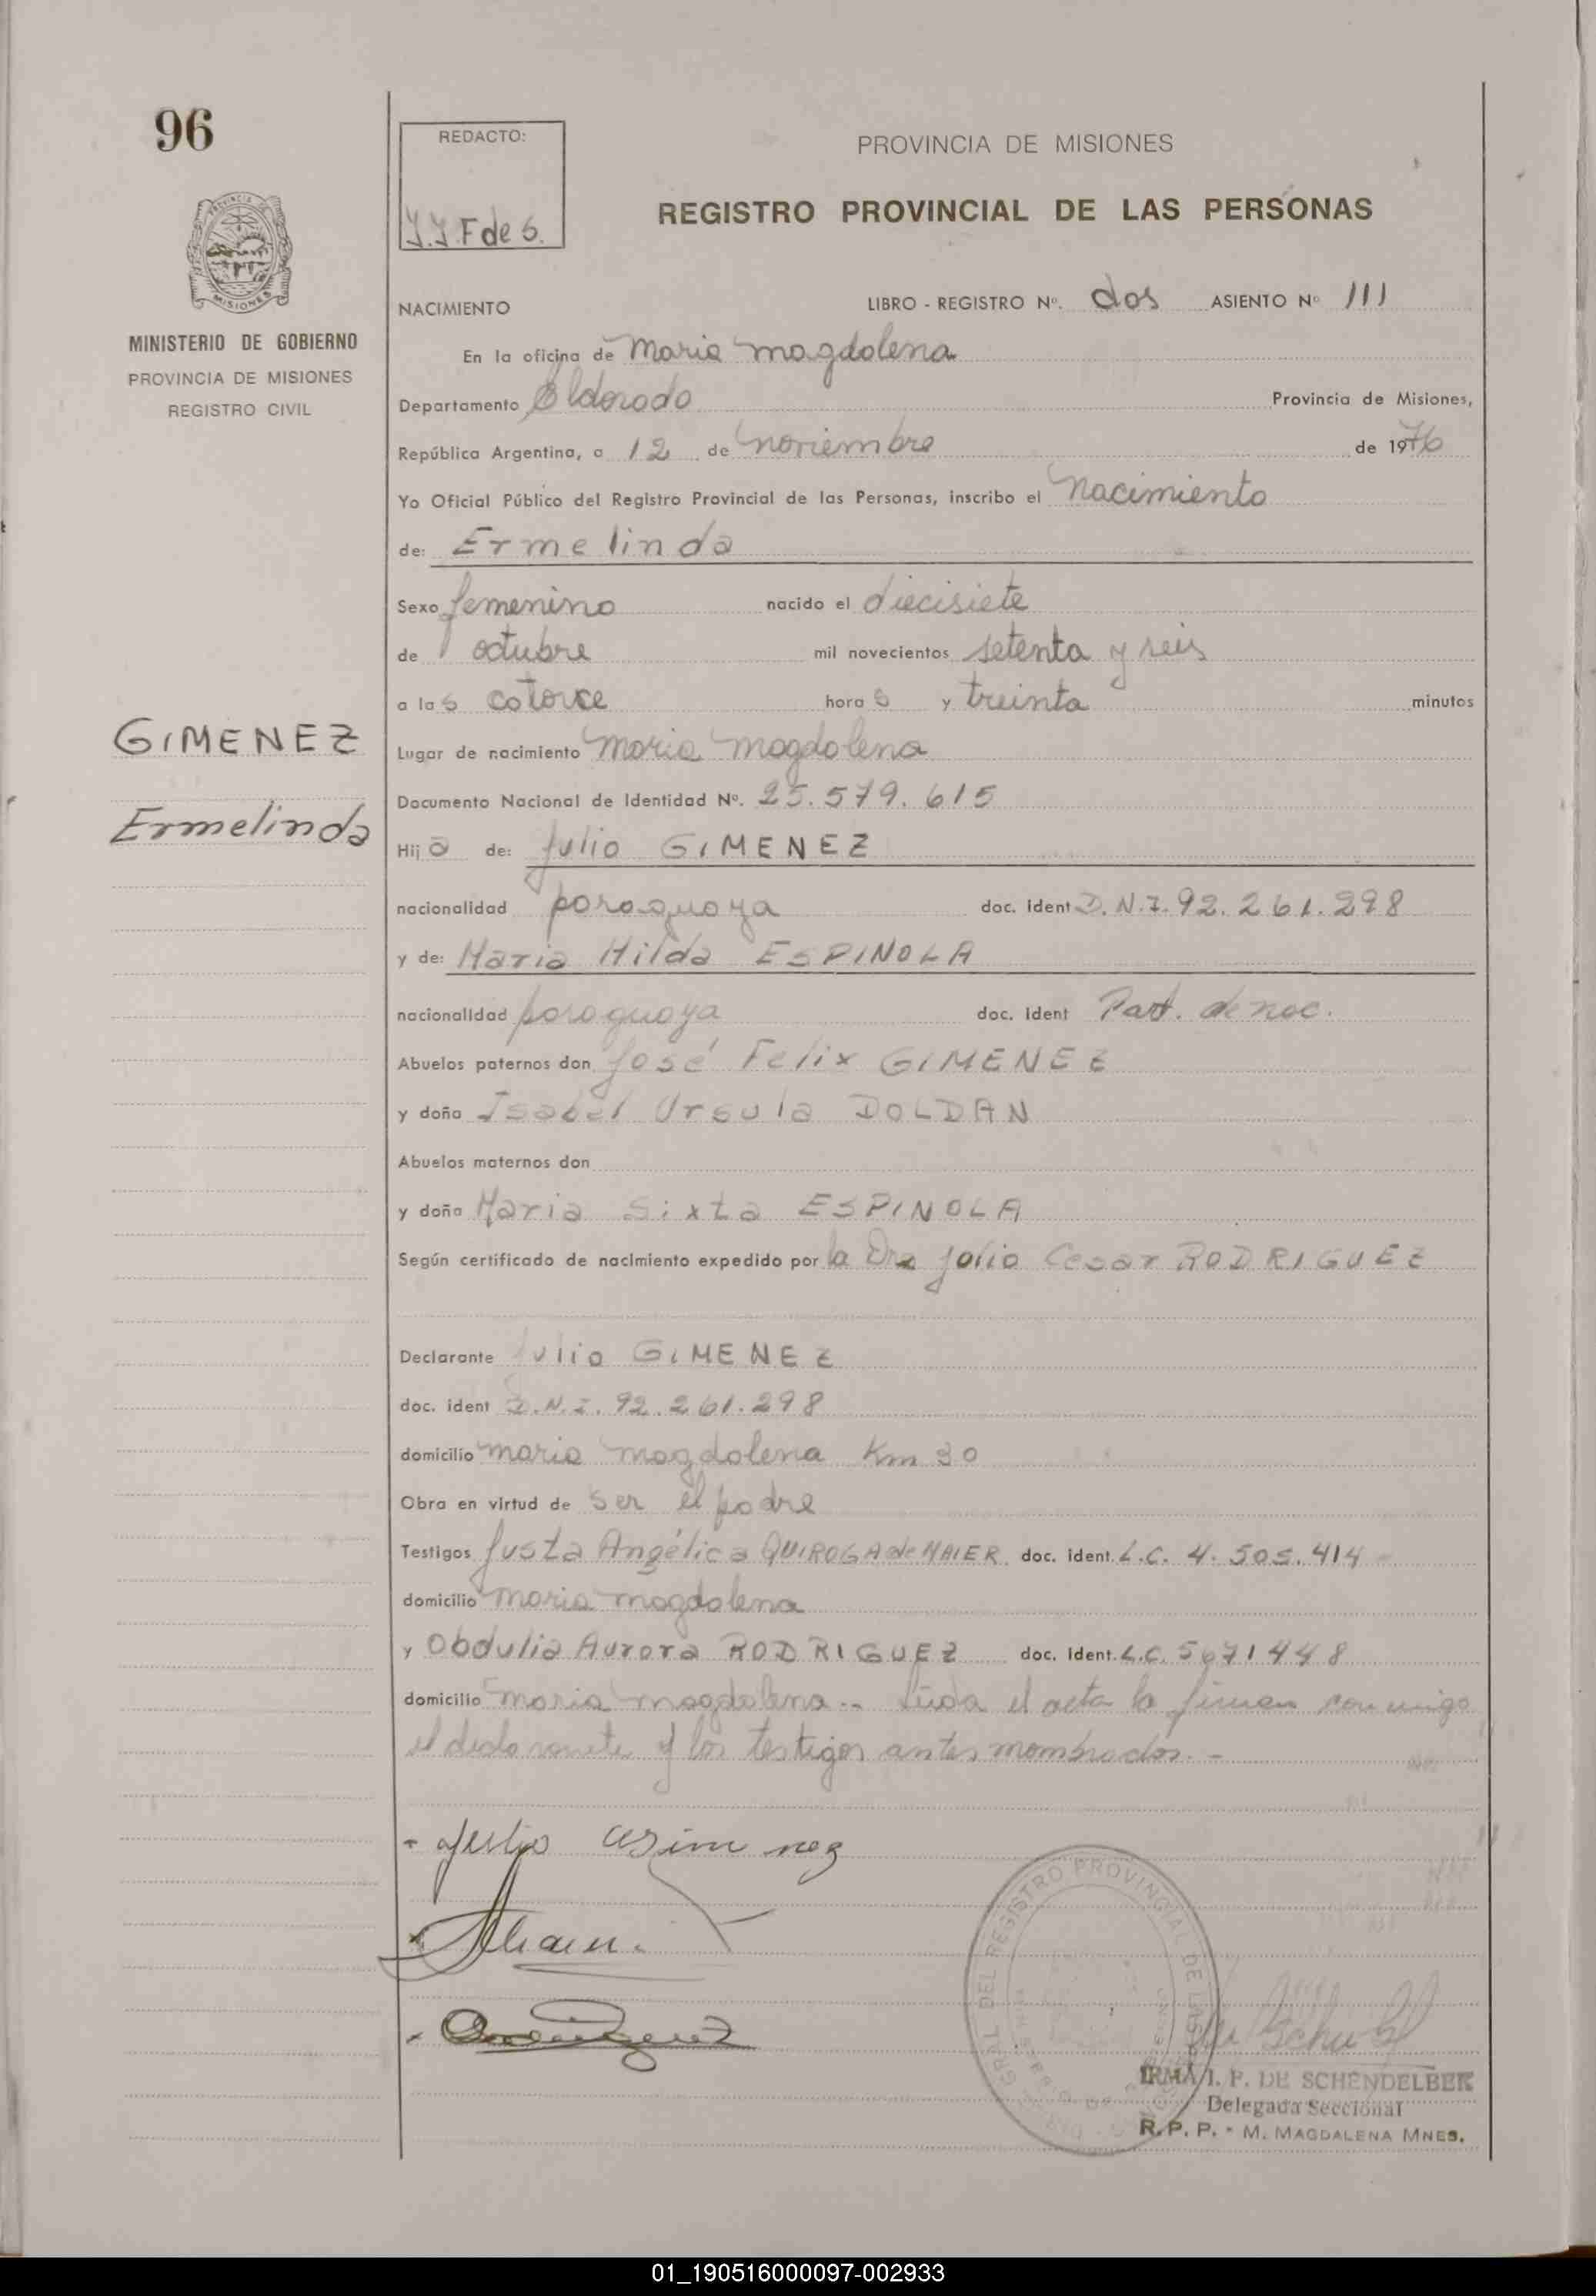 96
REDACTO:
J.J F de S.
PROVINCIA DE MISIONES
REGISTRO PROVINCIAL DE LAS PERSONAS
MISIONES
MINISTERIO DE GOBIERNO
PROVINCIA DE MISIONES
REGISTRO CIVIL
NACIMIENTO LIBRO - REGISTRO Nº. dos ASIENTO Nº 111
En la oficina de Maria Magdalena
Departamento Eldorado Provincia de Misiones,
República Argentina, a 12 de Noviembre de 1976
Yo Oficial Público del Registro Provincial de las Personas, inscribo el Nacimiento
de: Ermelinda
Sexo femenino nacido el diecisiete
de octubre mil novecientos setenta y seis
a las catorce horas y treinta minutos
GIMENEZ
Ermelinda
Lugar de nacimiento Maria Magdalena
Documento Nacional de Identidad Nº. 25.579.615
Hija de: Julio GIMENEZ
nacionalidad paraguaya doc. ident D.N.I. 92.261.298
y de: Maria Hilda ESPINOLA
nacionalidad paraguaya doc. ident Part. de nac.
Abuelos paternos don José Felix GIMENEZ
y doña Isabel Ursula DOLDAN
Abuelos maternos don
y doña Maria Sixta ESPINOLA
Según certificado de nacimiento expedido por la Dra Julio Cesar RODRIGUEZ
Declarante Julio GIMENEZ
doc. ident D.N.I. 92.261.298
domicilio Maria Magdalena Km 30
Obra en virtud de ser el padre
Testigos Justa Angélica QUIROGA de MAIER doc. ident. L.C. 4.505.414
domicilio Maria Magdalena
y Obdulia Aurora RODRIGUEZ doc. ident. L.C. 5671448
domicilio Maria Magdalena.- Leida el acta la firman conmigo
el declarante y los testigos antes mombrados.-
Julio Gimenez
IRMA I. P. DE SCHENDELBEK
Delegada Seccional
R.P.P. - M. MAGDALENA MNES.
01_190516000097-002933